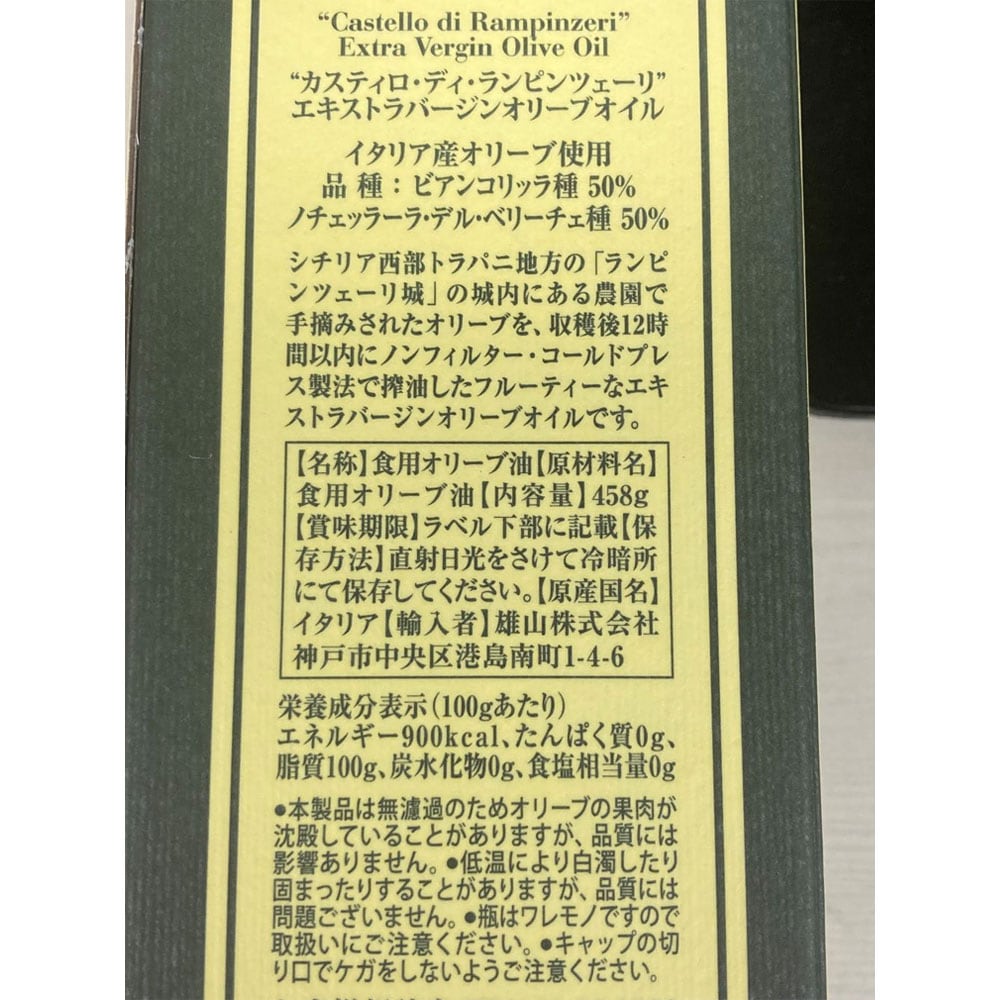 “Castello di Rampinzeri”
Extra Vergin Olive Oil
“カスティロ・ディ・ランピンツェーリ”
エキストラバージンオリーブオイル
イタリア産オリーブ使用
品 種 : ビアンコリッラ種 50%
ノチェッラーラ・デル・ベリーチェ種 50%
シチリア西部トラパニ地方の「ランピ
ンツェーリ城」の城内にある農園で
手摘みされたオリーブを、収穫後12時
間以内にノンフィルター・コールドプレ
ス製法で搾油したフルーティーなエキ
ストラバージンオリーブオイルです。
【名称】食用オリーブ油【原材料名】
食用オリーブ油【内容量】458g
【賞味期限】ラベル下部に記載【保
存方法】直射日光をさけて冷暗所
にて保存してください。【原産国名】
イタリア【輸入者】雄山株式会社
神戸市中央区港島南町1-4-6
栄養成分表示(100gあたり)
エネルギー900kcal、たんぱく質0g、
脂質100g、炭水化物0g、食塩相当量0g
●本製品は無濾過のためオリーブの果肉が
沈殿していることがありますが、品質には
影響ありません。●低温により白濁したり
固まったりすることがありますが、品質には
問題ございません。●瓶はワレモノですので
取扱いにご注意ください。●キャップの切
り口でケガをしないようご注意ください。